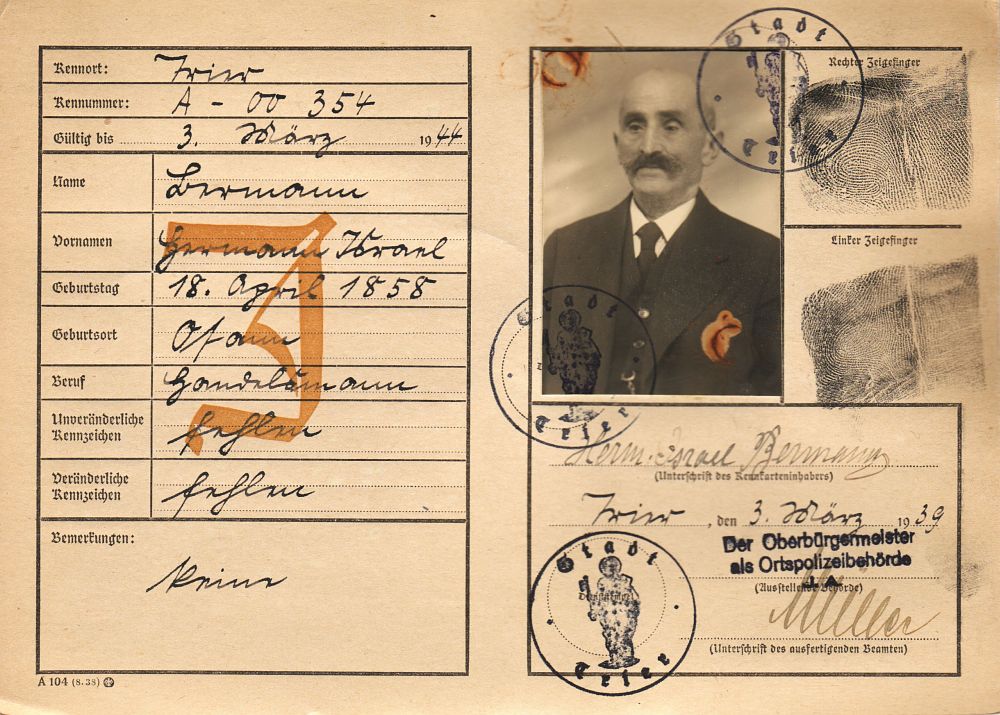 Kennort: Trier
Kennummer: A - 00 354
Gültig bis 3. März 1944
Name Bermann
Vornamen Hermann Israel
Geburtstag 18. April 1858
Geburtsort Osann
Beruf Handelsmann
Unveränderliche Kennzeichen fehlen
Veränderliche Kennzeichen fehlen
Bemerkungen:
Keine
J
A 104 (8. 38)
Stadt
Trier
Rechter Zeigefinger
Linker Zeigefinger
Stadt
Trier
Herm. Israel Bermann
(Unterschrift des Kennkarteninhabers)
Trier, den 3. März 1939
Der Oberbürgermeister
als Ortspolizeibehörde
(Ausstellende Behörde)
Stadt
Dienstsiegel
Trier
Müller
(Unterschrift des ausfertigenden Beamten)